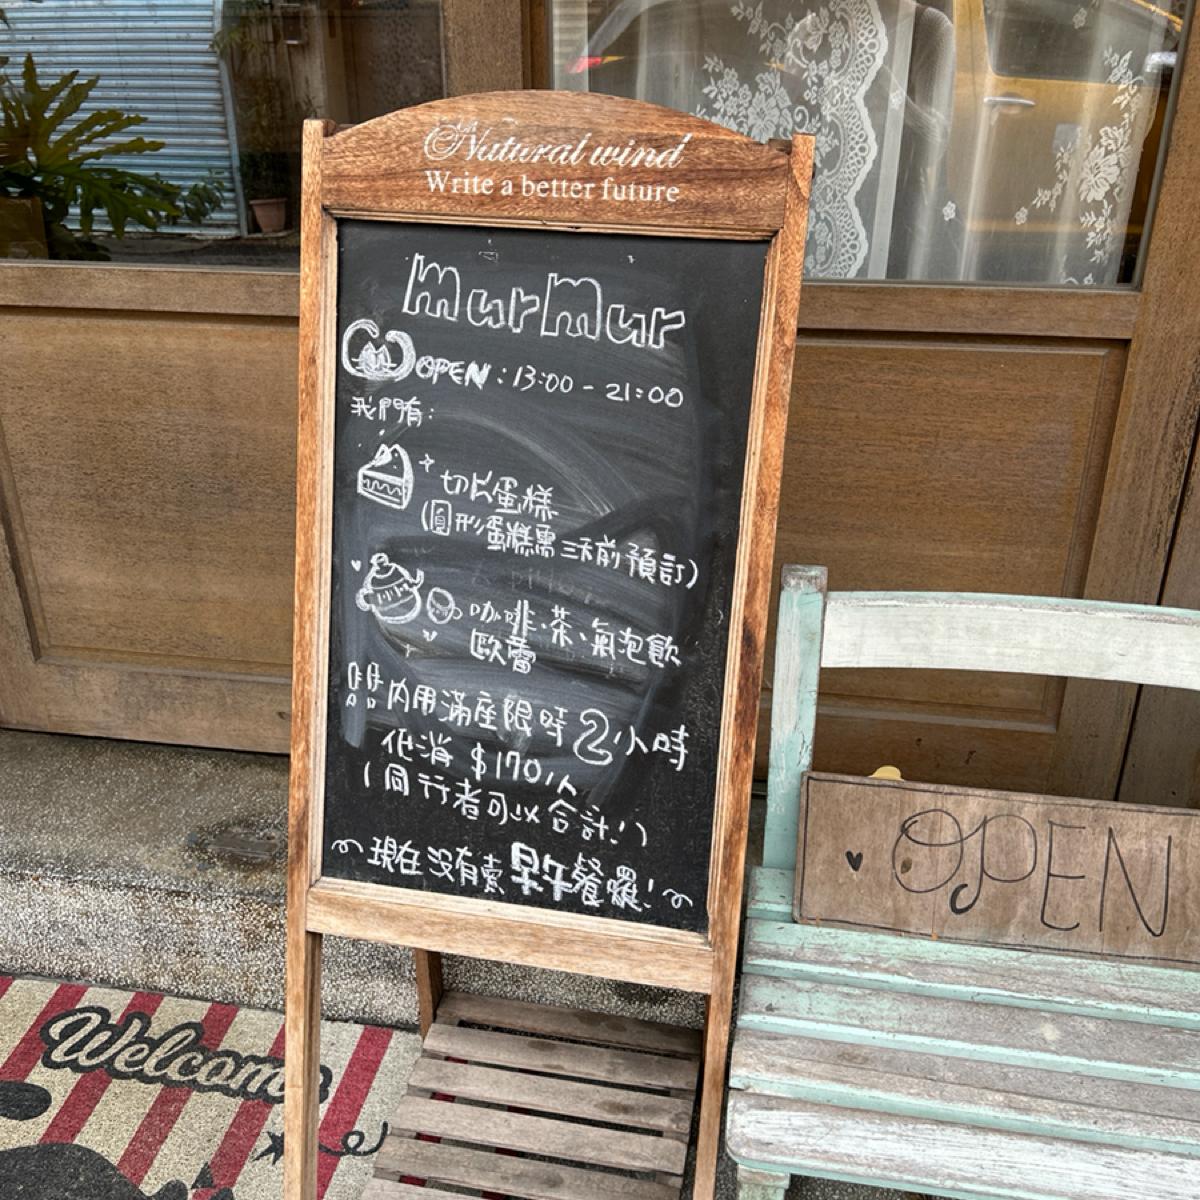 Natural wind
Write a better future
MurMur
OPEN : 13:00 - 21:00
我們有:
切片蛋糕
(圓形蛋糕需三天前預訂)
咖啡、茶、氣泡飲
歐蕾
內用滿座限時2小時
低消 $170/人
(同行者可以合計!)
現在沒有賣早午餐囉!
OPEN
Welcome